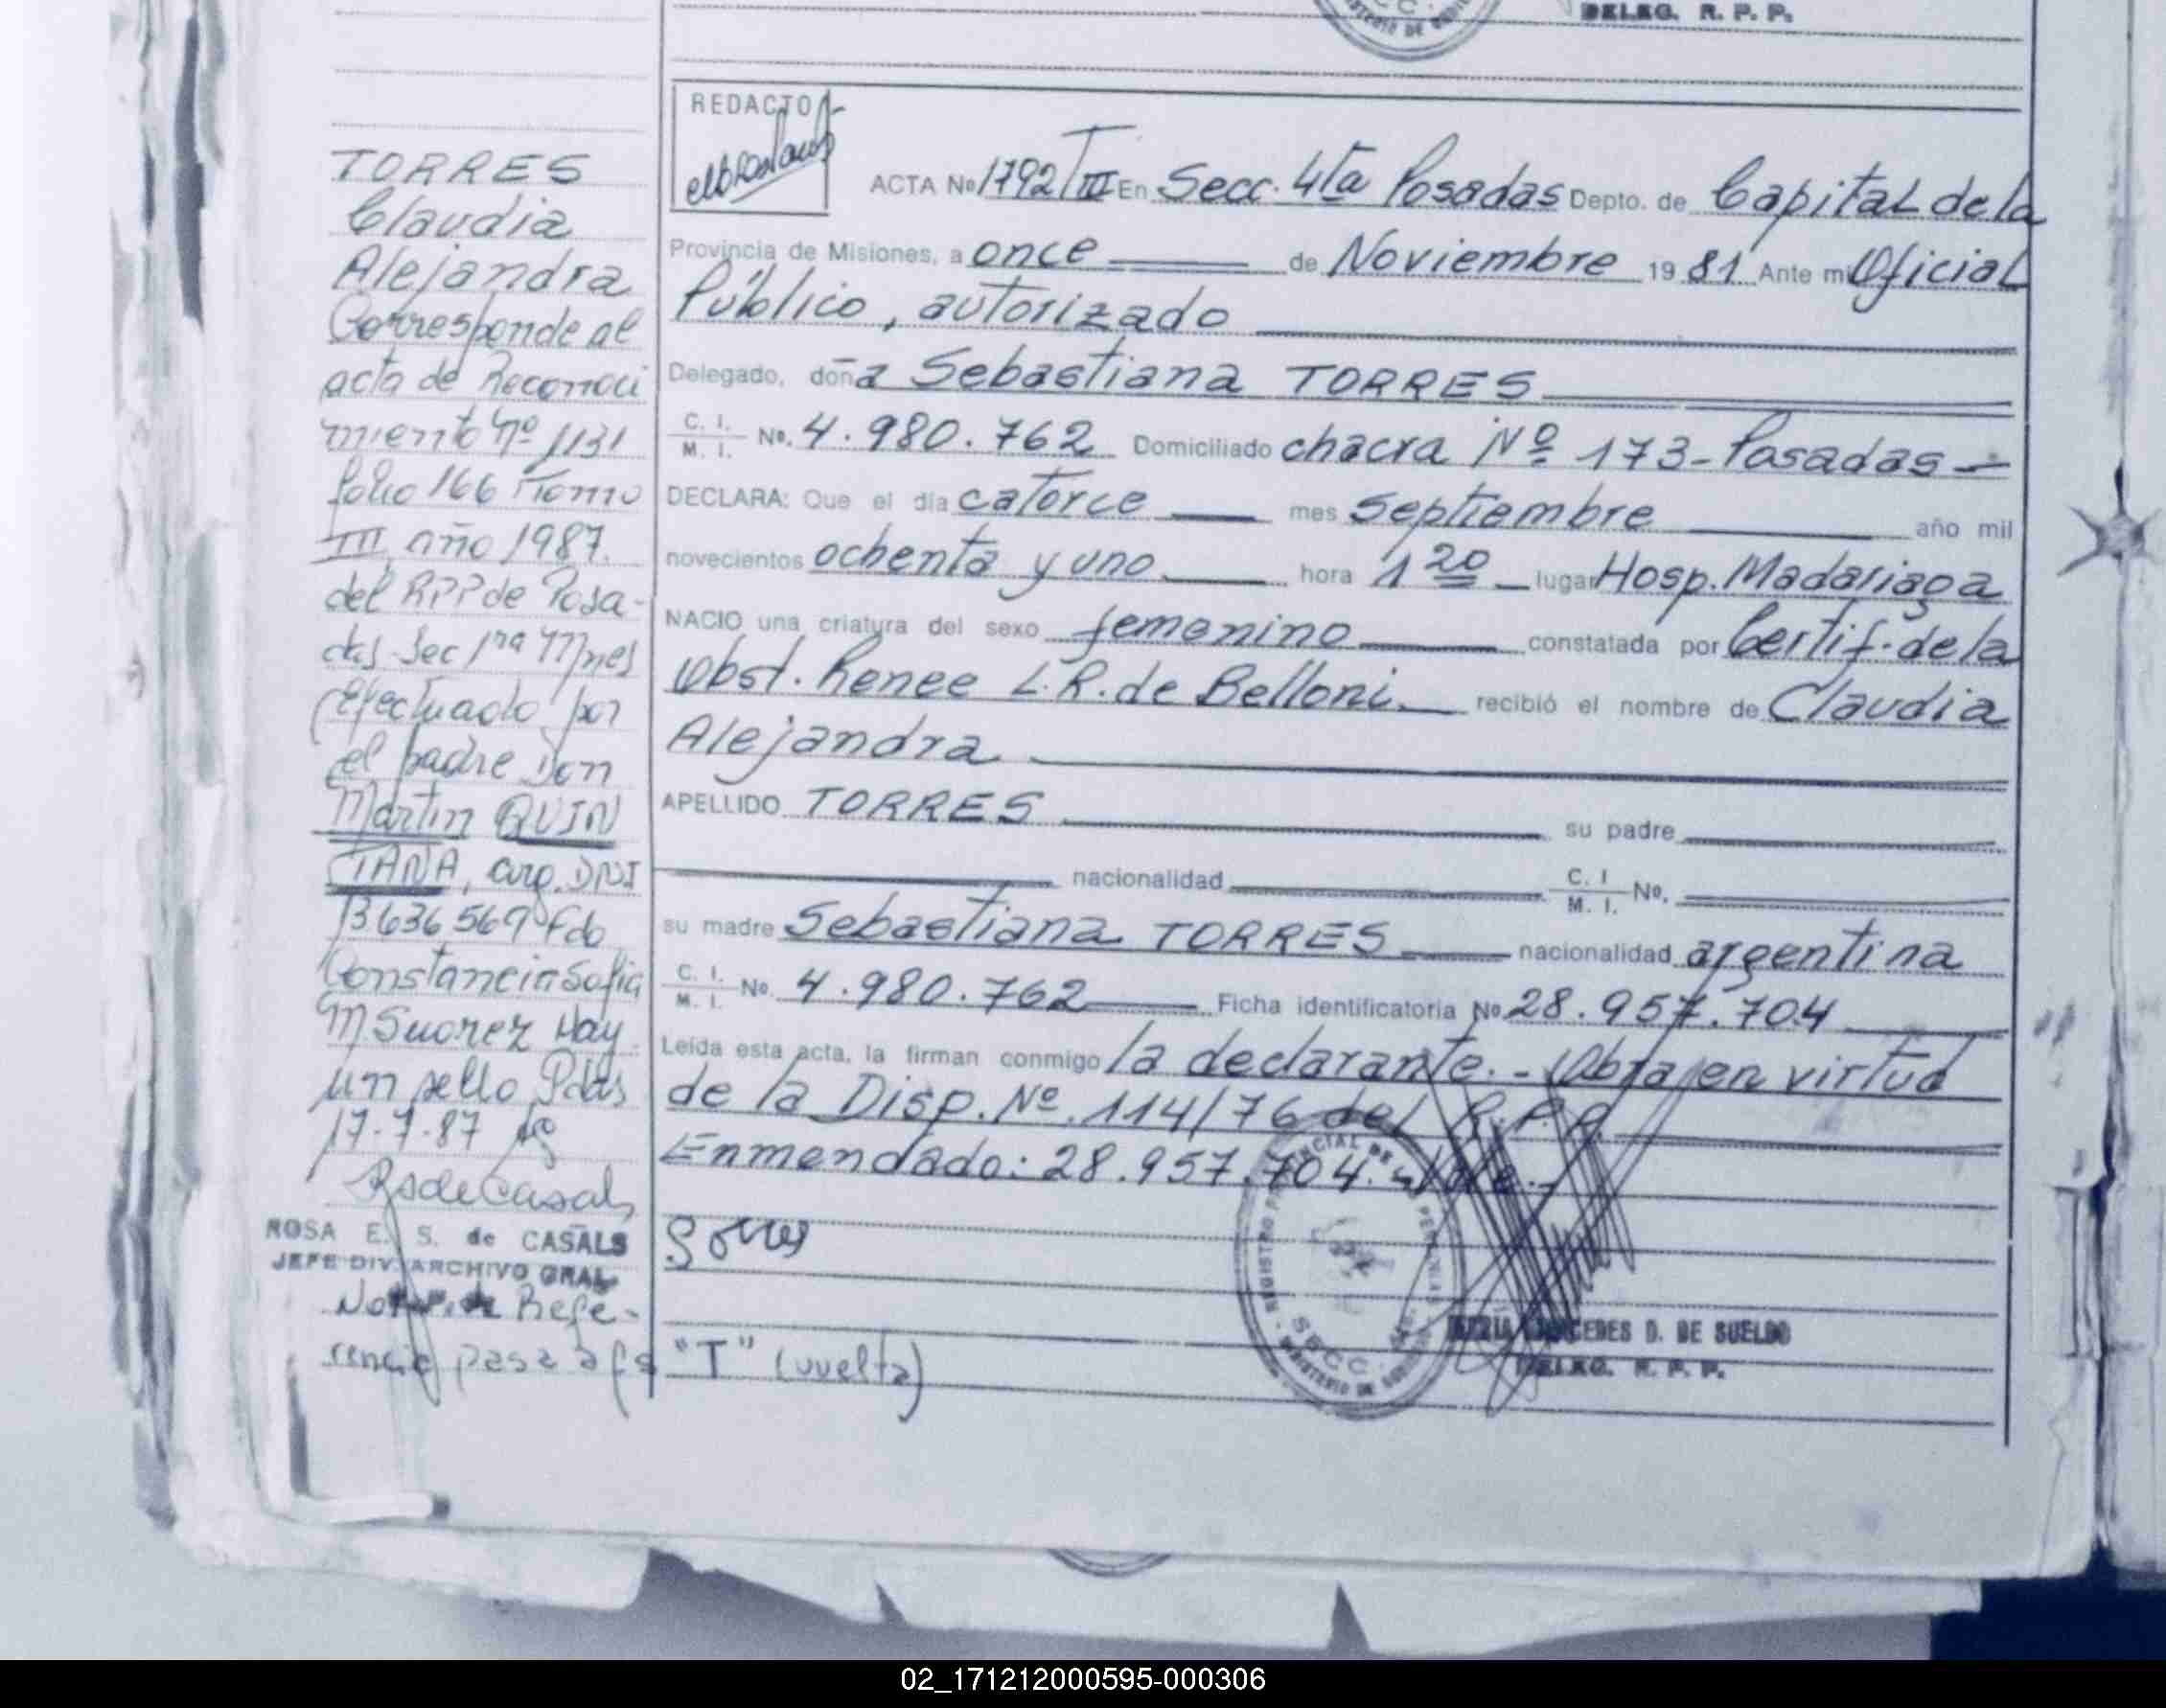 DELEG. R. P. P.
TORRES
Claudia
Alejandra
Corresponde al
acta de Reconoci
miento Nº 1131
folio 166 Tomo
III año 1987.
del RPP de Posa-
das Sec 1ra Mnes
Efectuado por
el padre Don
Martin QUIN
TANA, arg. DNI
13636569 Fdo
Constancia Sofia
M Suarez Hay
un sello Pdas
17-7-87
RSdeCasals
ROSA E. S. de CASALS
JEFE DIV. ARCHIVO GRAL.
Nota de Refe-
rencia pasa a fs "T" (vuelta)
REDACTO
ACTA Nº 1792/T III En Secc. 4ta Posadas Depto. de Capital de la
Provincia de Misiones, a once de Noviembre 19 81 Ante mi Oficial
Público, autorizado
Delegado, doña Sebastiana TORRES
C. I. / M. I. Nº. 4.980.762 Domiciliado chacra Nº 173-Posadas-
DECLARA: Que el día catorce mes septiembre año mil
novecientos ochenta y uno hora 1 20 lugar Hosp. Madariaga
NACIO una criatura del sexo femenino constatada por Certif. de la
Obst. Renee L.R. de Belloni recibió el nombre de Claudia
Alejandra
APELLIDO TORRES su padre
nacionalidad C. I / M. I. Nº.
su madre Sebastiana TORRES nacionalidad argentina
C. I. / M. I. Nº. 4.980.762 Ficha identificatoria Nº 28.957.704
Leída esta acta, la firman conmigo la declarante.- Obra en virtud
de la Disp. Nº 114/76 del R.P.P.
Enmendado: 28.957.704. Vale.-
MERCEDES D. DE SUELDO
DELEG. R. P. P.
02_171212000595-000306